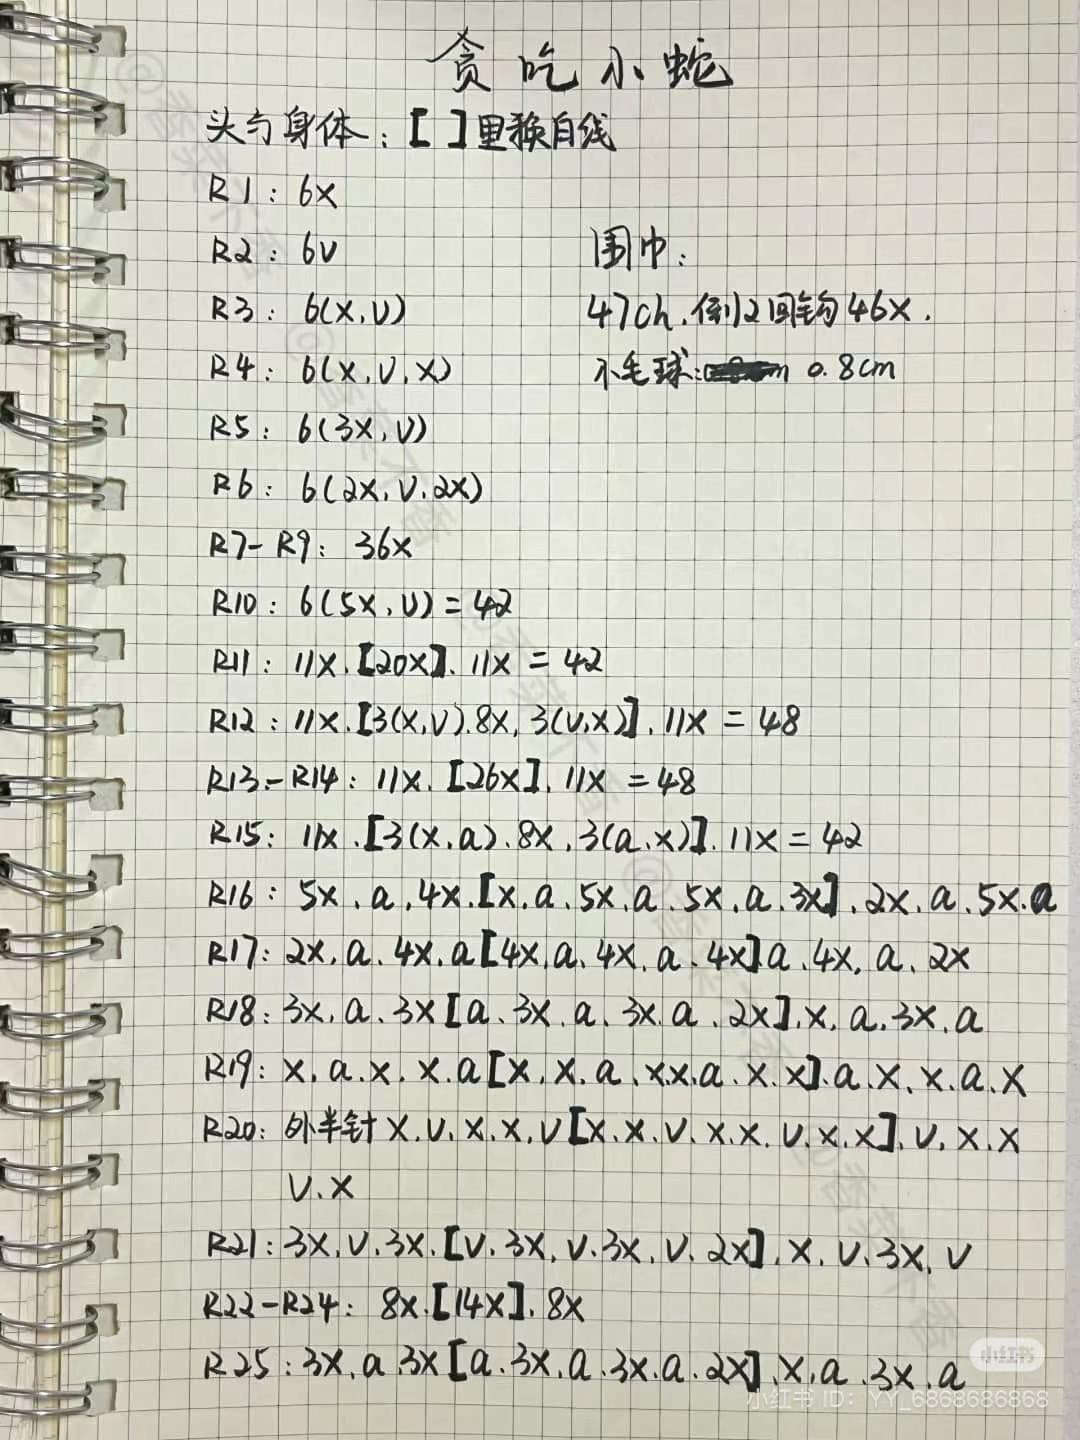 贪吃小蛇
头与身体：[ ]里换白线
R1：6X
R2：6V
R3：6(X,V)
R4：6(X,V,X)
R5：6(3X,V)
R6：6(2X,V,2X)
围巾：
47ch,倒2回钩46X.
小毛球： 0.8cm
R7-R9：36X
R10：6(5X,V)=42
R11：11X.[20X].11X=42
R12：11X.[3(X,V).8X,3(V,X)].11X=48
R13-R14：11X.[26X].11X=48
R15：11X.[3(X,a).8X.3(a.X)].11X=42
R16：5X.a.4X.[X.a.5X.a.5X.a.3X].2X.a.5X.a
R17：2X.a.4X.a[4X.a.4X.a.4X]a.4X.a.2X
R18：3X.a.3X[a.3X.a.3X.a.2X].X.a.3X.a
R19：X.a.X.X.a[X.X.a.X.X.a.X.X].a.X.X.a.X
R20：外半针X.V.X.X.V[X.X.V.X.X.V.X.X].V.X.X
V.X
R21：3X.V.3X.[V.3X.V.3X.V.2X].X.V.3X.V
R22-R24：8X.[14X].8X
R25：3X.a.3X[a.3X.a.3X.a.2X].X.a.3X.a
小红书
小红书 ID: YY_6868686868